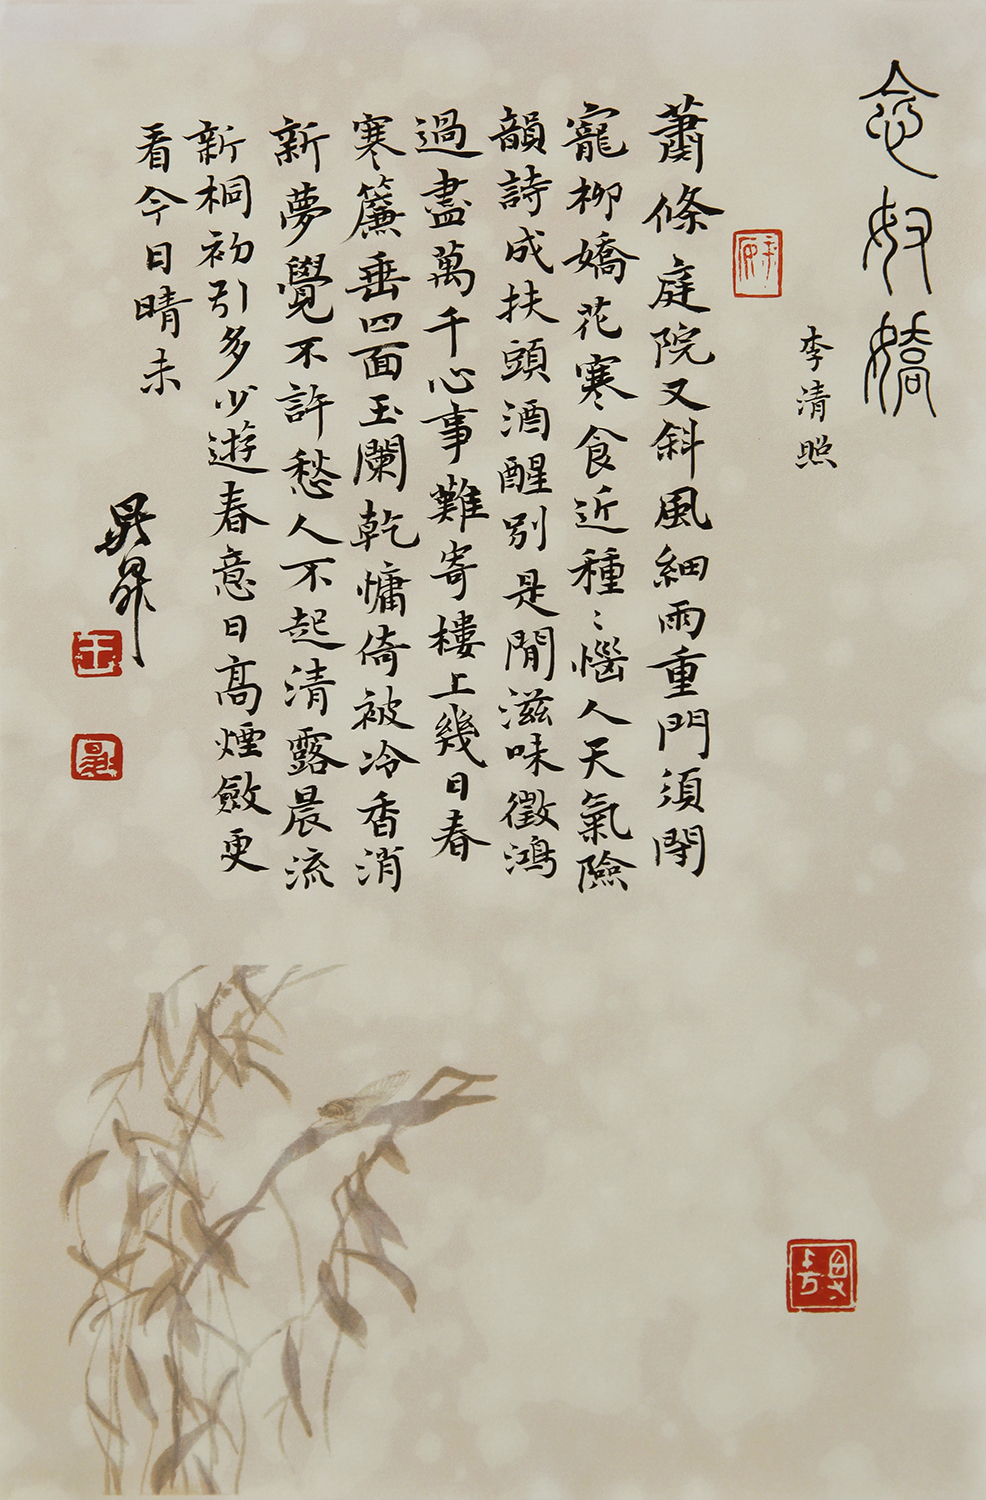 念奴嬌
李清照
蕭條庭院又斜風細雨重門須閉
寵柳嬌花寒食近種々惱人天氣險
韻詩成扶頭酒醒別是閒滋味徵鴻
過盡萬千心事難寄樓上幾日春
寒簾垂四面玉闌乾慵倚被冷香消
新夢覺不許愁人不起清露晨流
新桐初引多少遊春意日高煙斂更
看今日晴未
王